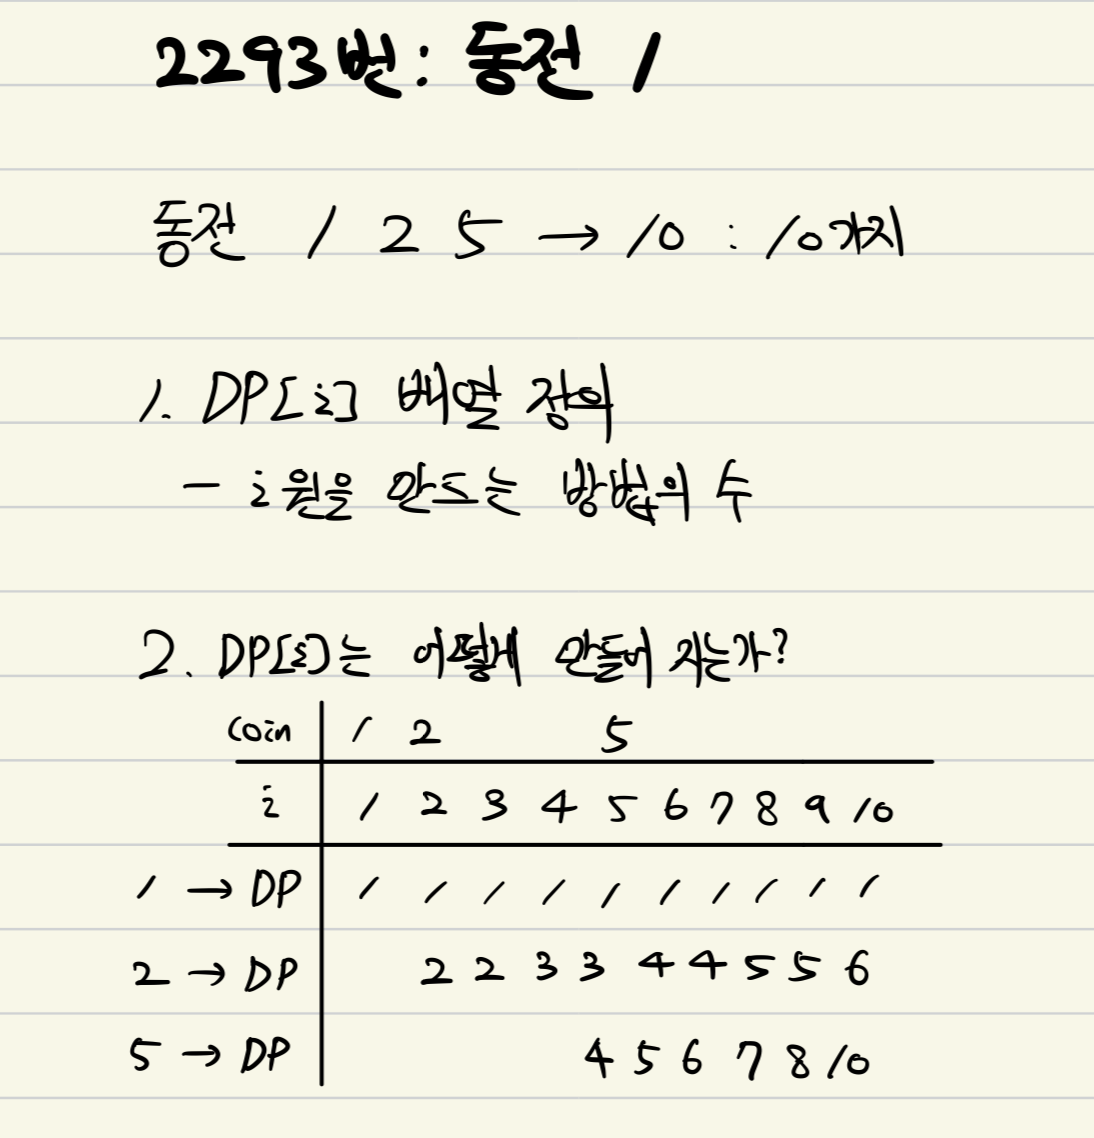 2293번: 동전 1
동전 1 2 5 → 10 : 10가지
1. DP[i] 배열 정의
- i원을 만드는 방법의 수
2. DP[i]는 어떻게 만들어 지는가?
coin 1 2 5
i 1 2 3 4 5 6 7 8 9 10
1 → DP 1 1 1 1 1 1 1 1 1 1
2 → DP 2 2 3 3 4 4 5 5 6
5 → DP 4 5 6 7 8 10